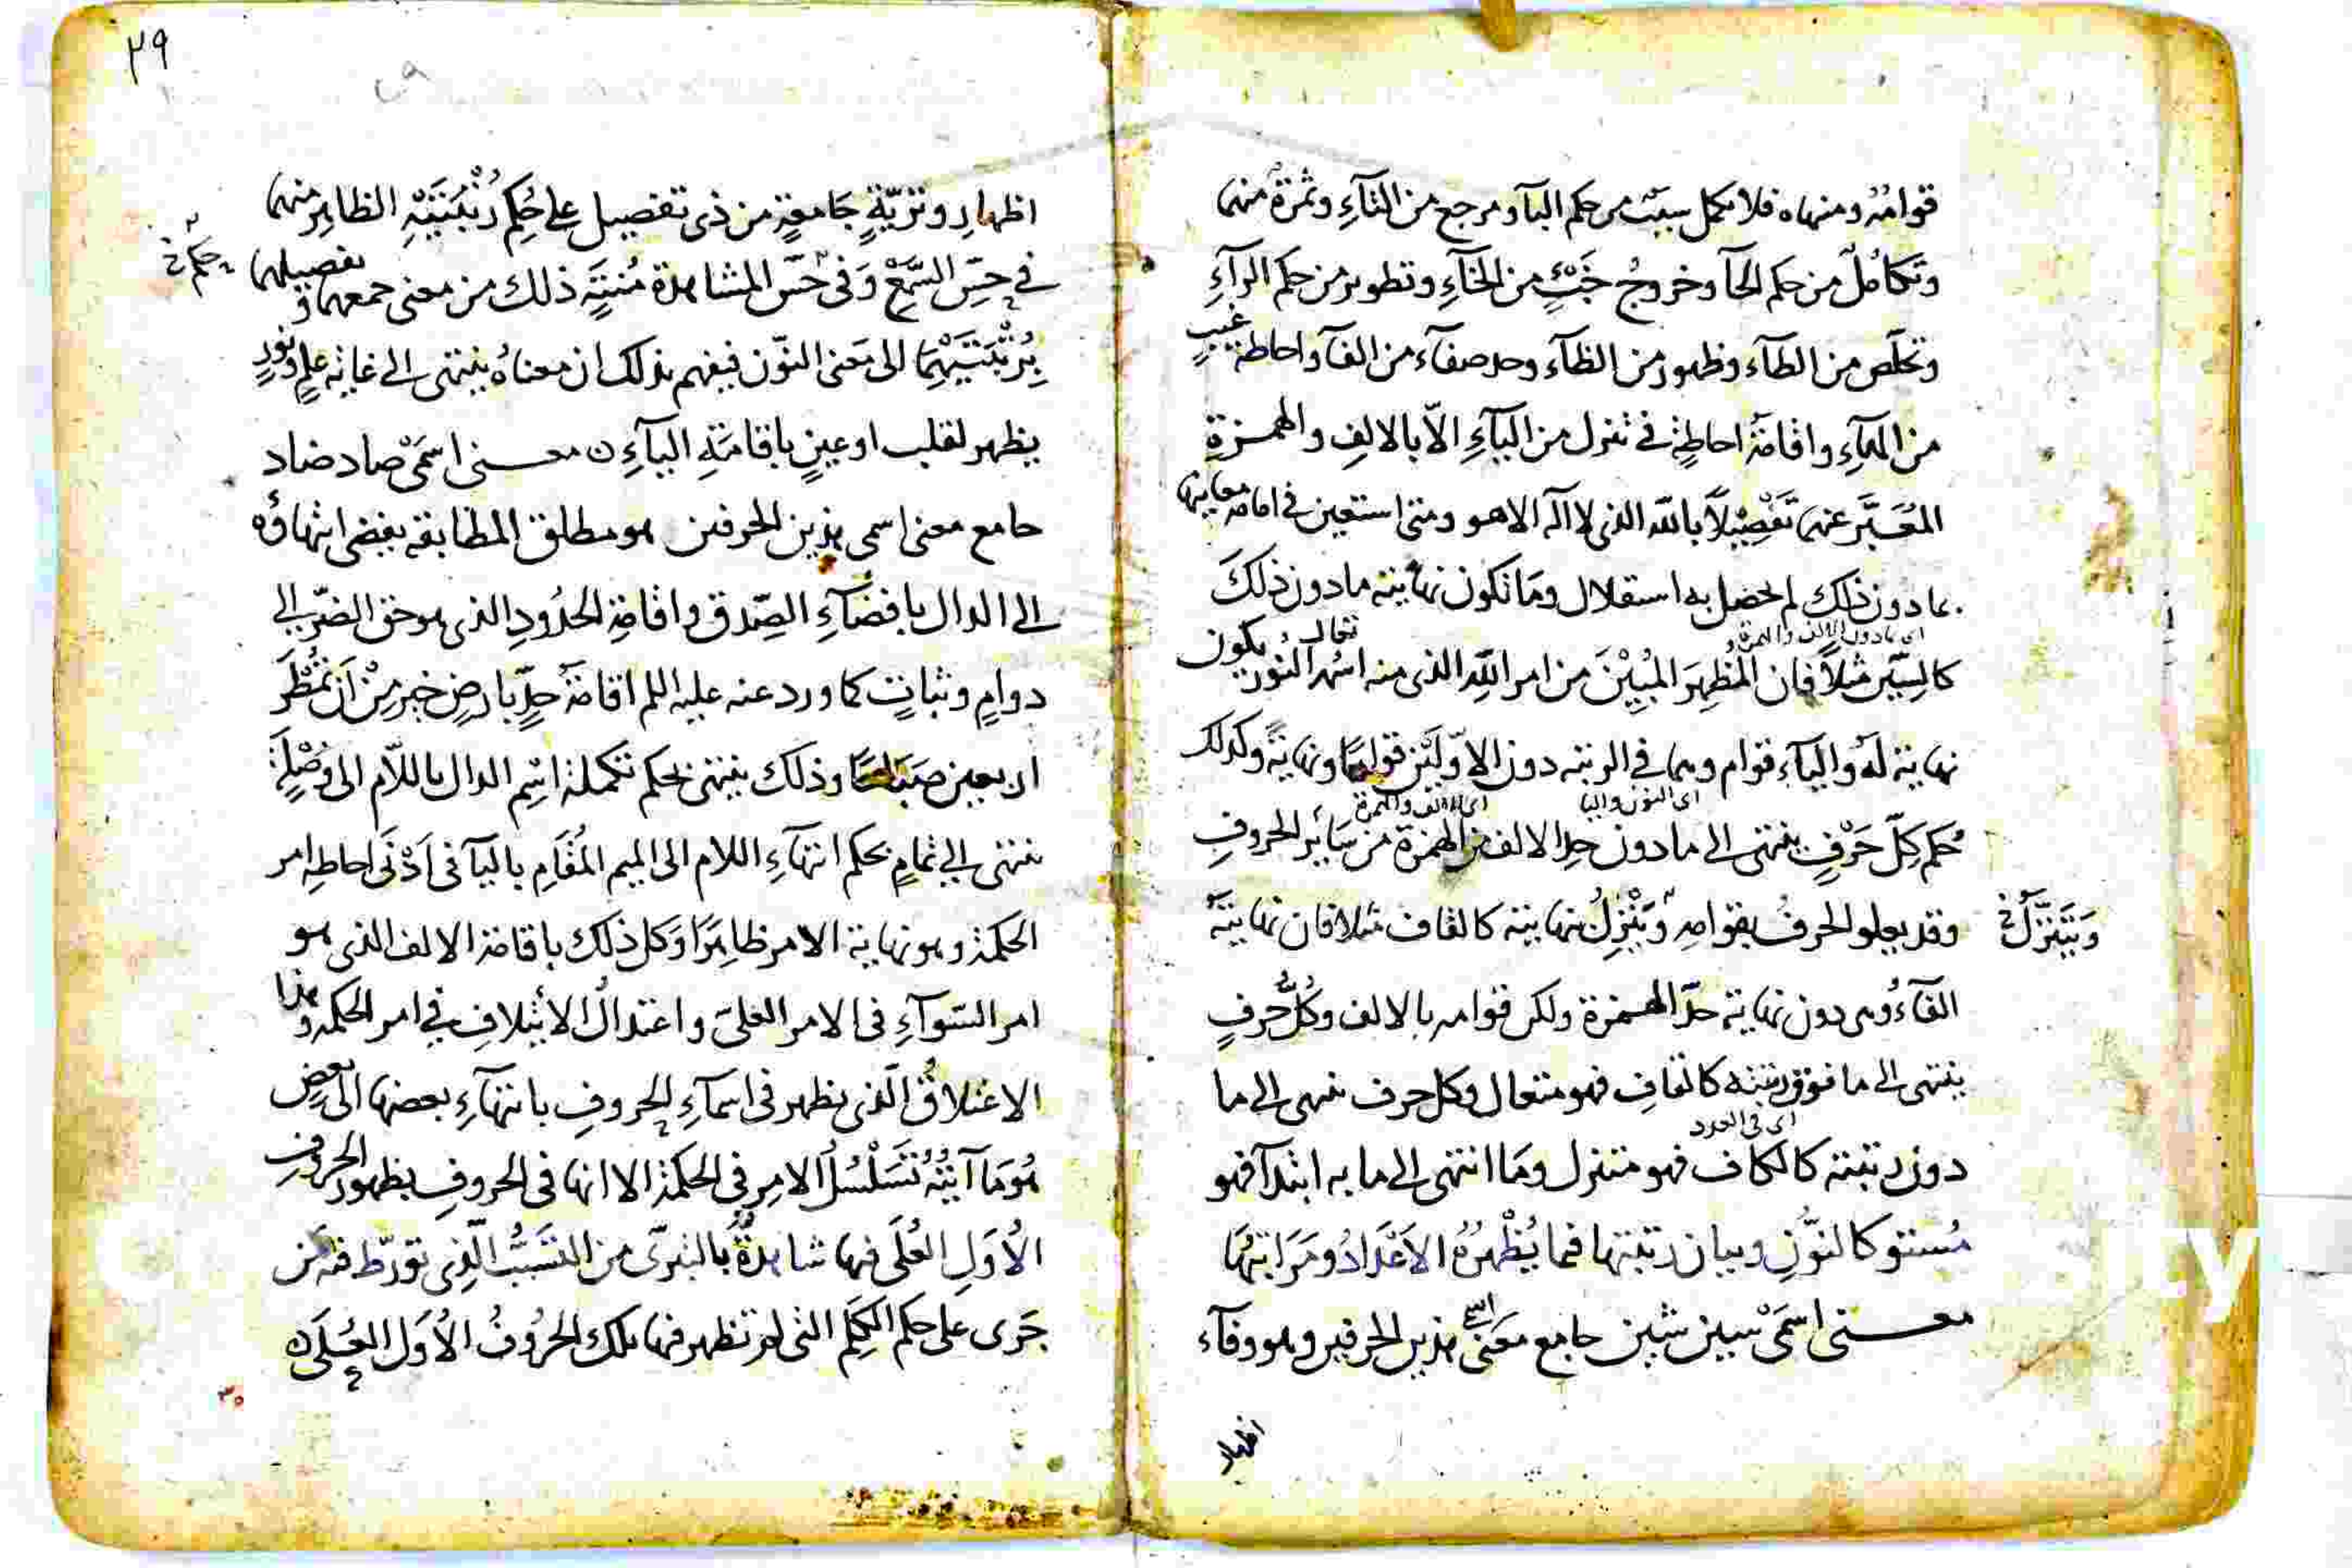 قوامُهُ ومنهاه فلا يكمل سببٌ من حكم البآ ومرجع من الثآءِ وثمرةٌ منهما
وتكاملٌ من حكم الحآ وخروجُ خَبْءٍ من الخآءِ وتطوير من حكم الرآءِ
وتخلّص من الطآء وظهور من الظآء وحد صفآء من الفآ واحاطة غيبٍ
من الهآءِ واقامةُ احاطةٍ في تنزل من اليآءِ الّا بالالفِ والهمزةِ
المُعَبَّر عنهما تَفْصِيْلًا بالله الذى لا آله الا هو ومتى استعين في اقامة معانيها
بما دون ذلك لم يحصل به استقلال ومَا تكون نهايته ما دون ذلك
اى ما دون الالف والهمزة
كالسِّين مثلًا فان المُظهِرَ المُبِيْنَ من امر اللهِ الذى منه اسمه النُّور تعالى يكون
نهايةً له واليآء قوام وهما في الرتبه دون الاوّلَيْن قوامًا ونهايةً وكذلك
اى النون واليا
اى الالف والهمزة
حُكم كلّ حَرْفٍ ينتهى الى ما دون حدِ الالف والهمزة من سَائر الحروفِ
وقد يعلو الحرفُ بقوامهِ وَيَنْزِلُ بنهايته كالقاف مثلا فان نهايتهُ
وَيَتَنَزَّلُ خ
الفآءُ وهى دون نهاية حدّ الهمزة ولكن قوامه بالالف وكُلُّ حرفٍ
ينتهى الى ما فوق رتبته كالقافِ فهو متعال وكل حرف ينتهى الى ما
اى في العدد
دون رتبته كالكاف فهو متنزل ومَا انتهى الى ما به ابتدآ فهو
مُستوٍ كالنّونِ وبيان رتبتها فيما يُظْهِرُهُ الاَعْدَادُ ومَرَاتبُهَا
معنى اسمَىْ سين شين جامع معنى اسمى هذين الحرفين وهو وفآء
اظهار
٢٩
اظهارٍ وتربّةٍ جَامعةٍ من ذى تفصيل على حُكمِ رُتْبَتَيْهِ الظاهِر منهما
في حِسّ السَّمْعِ وَفى حسّ المشاهدة مُنبِّة ذلك من معنى جمعهما و تفصيلهما
حكم خ
بِرُتْبَتَيْهِمَا الى مَعنى النّون فيفهم بذلك ان معناهُ ينتهى الى غاية علمٍ ونورٍ
يظهر لقلب او عينٍ باقامَةِ اليآءِ ن معنى اسمَىْ صاد ضاد
جامع معنى اسمى هذين الحرفين هو مطلق المطابقة يفضى انتهاؤه
الى الدال بافضآءِ الصِّدق واقامةِ الحدُودِ الذى هو حق الضرّ الى
دوامٍ وثباتٍ كما ورد عنه عليه السلم اقامةُ حدٍّ بارضٍ خير مِنْ اَن تُمْطَرَ
اربعين صَبَاحًا وذلك ينتهى بحكم تكملة اسْمِ الدال باللّام الى وُصْلةٍ
ينتهى الى تمامٍ بحكم انتهآءِ اللام الى الميم المُقَامِ باليآ في اَدْنَى احاطةِ امر
الحكمة وهو نهاية الامر ظاهِرًا وَكل ذلك باقامة الالف الذى هو
امر السّوآءِ في الامر العلىّ واعتدالُ الأيتلافِ في امر الحكمة وهذا
الاعتلاقُ الّذى يظهر في اسمآءِ الحروفِ بانتهآءِ بعضها الى بعضٍ
هُوَ مَا آيَتُهُ تَسَلْسُلُ الامرِ في الحكمة الا انها في الحروفِ بظهور الحروفِ
الاُوَلِ العُلَى فيها شاهدةٌ بالتبرّى من التسَبُّبِ الّذى تورّط فيه مَن
جَرَى على حكم الكَلِمِ التى لم تظهر فيها تلك الحرُوفُ الاُوَلُ العُلَى ه
٣٠